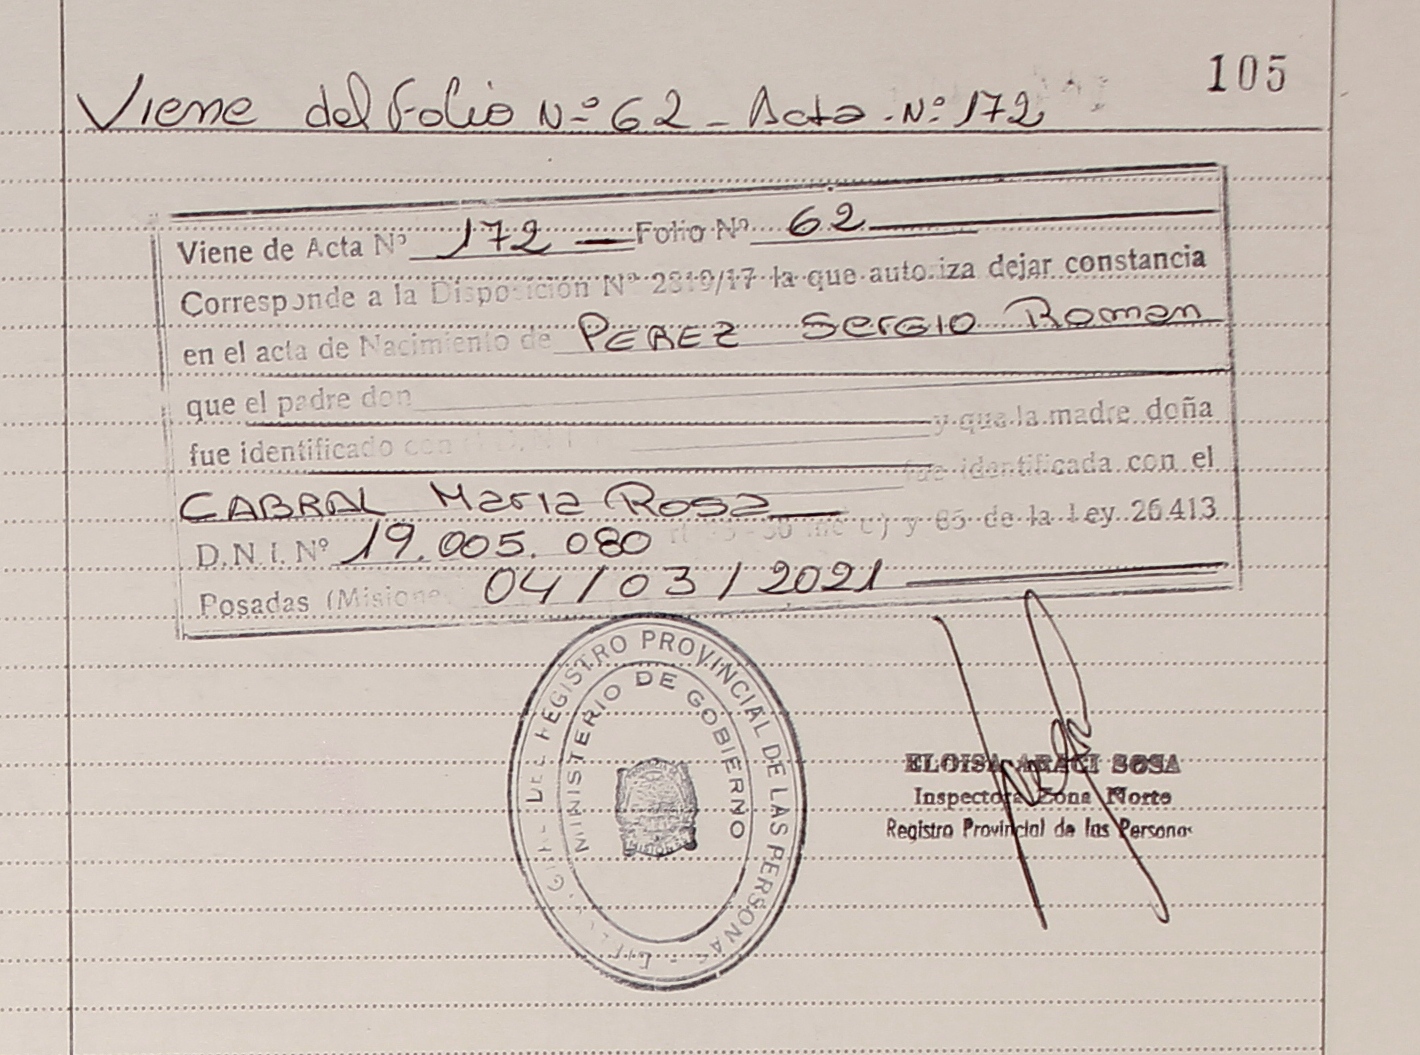 105
Viene del Folio Nº 62 - Acta Nº 172
Viene de Acta Nº 172 — Folio Nº 62
Corresponde a la Disposición Nº 2819/17 la que autoriza dejar constancia
en el acta de Nacimiento de PEREZ Sergio Roman
que el padre don
y que la madre doña
fue identificado con D.N.I.
fue identificada con el
CABRAL Maria Rosa
D.N.I. Nº 19.005.080
y 65 de la Ley 26413
Posadas (Misiones) 04/03/2021
DEL REGISTRO PROVINCIAL DE LAS PERSONAS
MINISTERIO DE GOBIERNO
ELOISA ARACI SOSA
Inspectora Zona Norte
Registro Provincial de las Personas